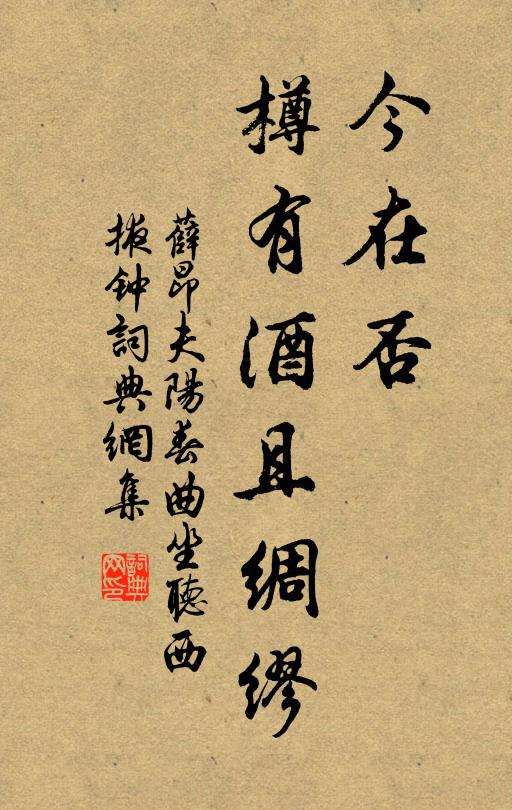 今在否
樽有酒且綢繆
薛昂夫陽春曲坐聽西
掖钟詞典網集
詞典
网印